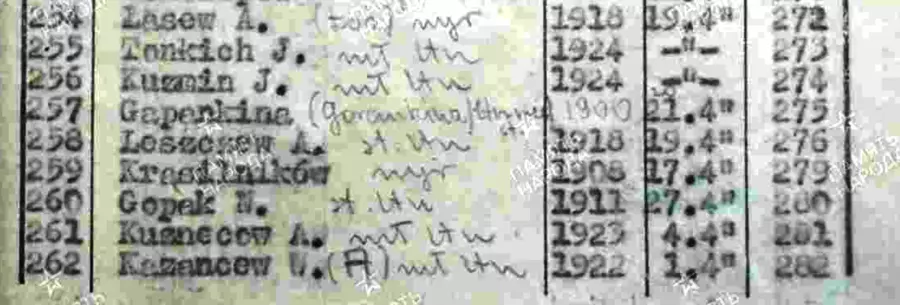 254 Łasew A. (tow) nyr 1918 19.4" 272
255 Tonkich J. mł ltn 1924 -"- 273
256 Kuzmin J. mł ltn 1924 -"- 274
257 Gapenkina 1900 21.4" 275
258 Leszczew A. st. ltn 1918 19.4" 276
259 Krasilników nyr 1908 17.4" 279
260 Gopek N. st. ltn 1911 27.4" 280
261 Kusnecow A. mł ltn 1923 4.4" 281
262 Kazancew W. (A) mł ltn 1922 1.4" 282
ПАМЯТЬ НАРОДА